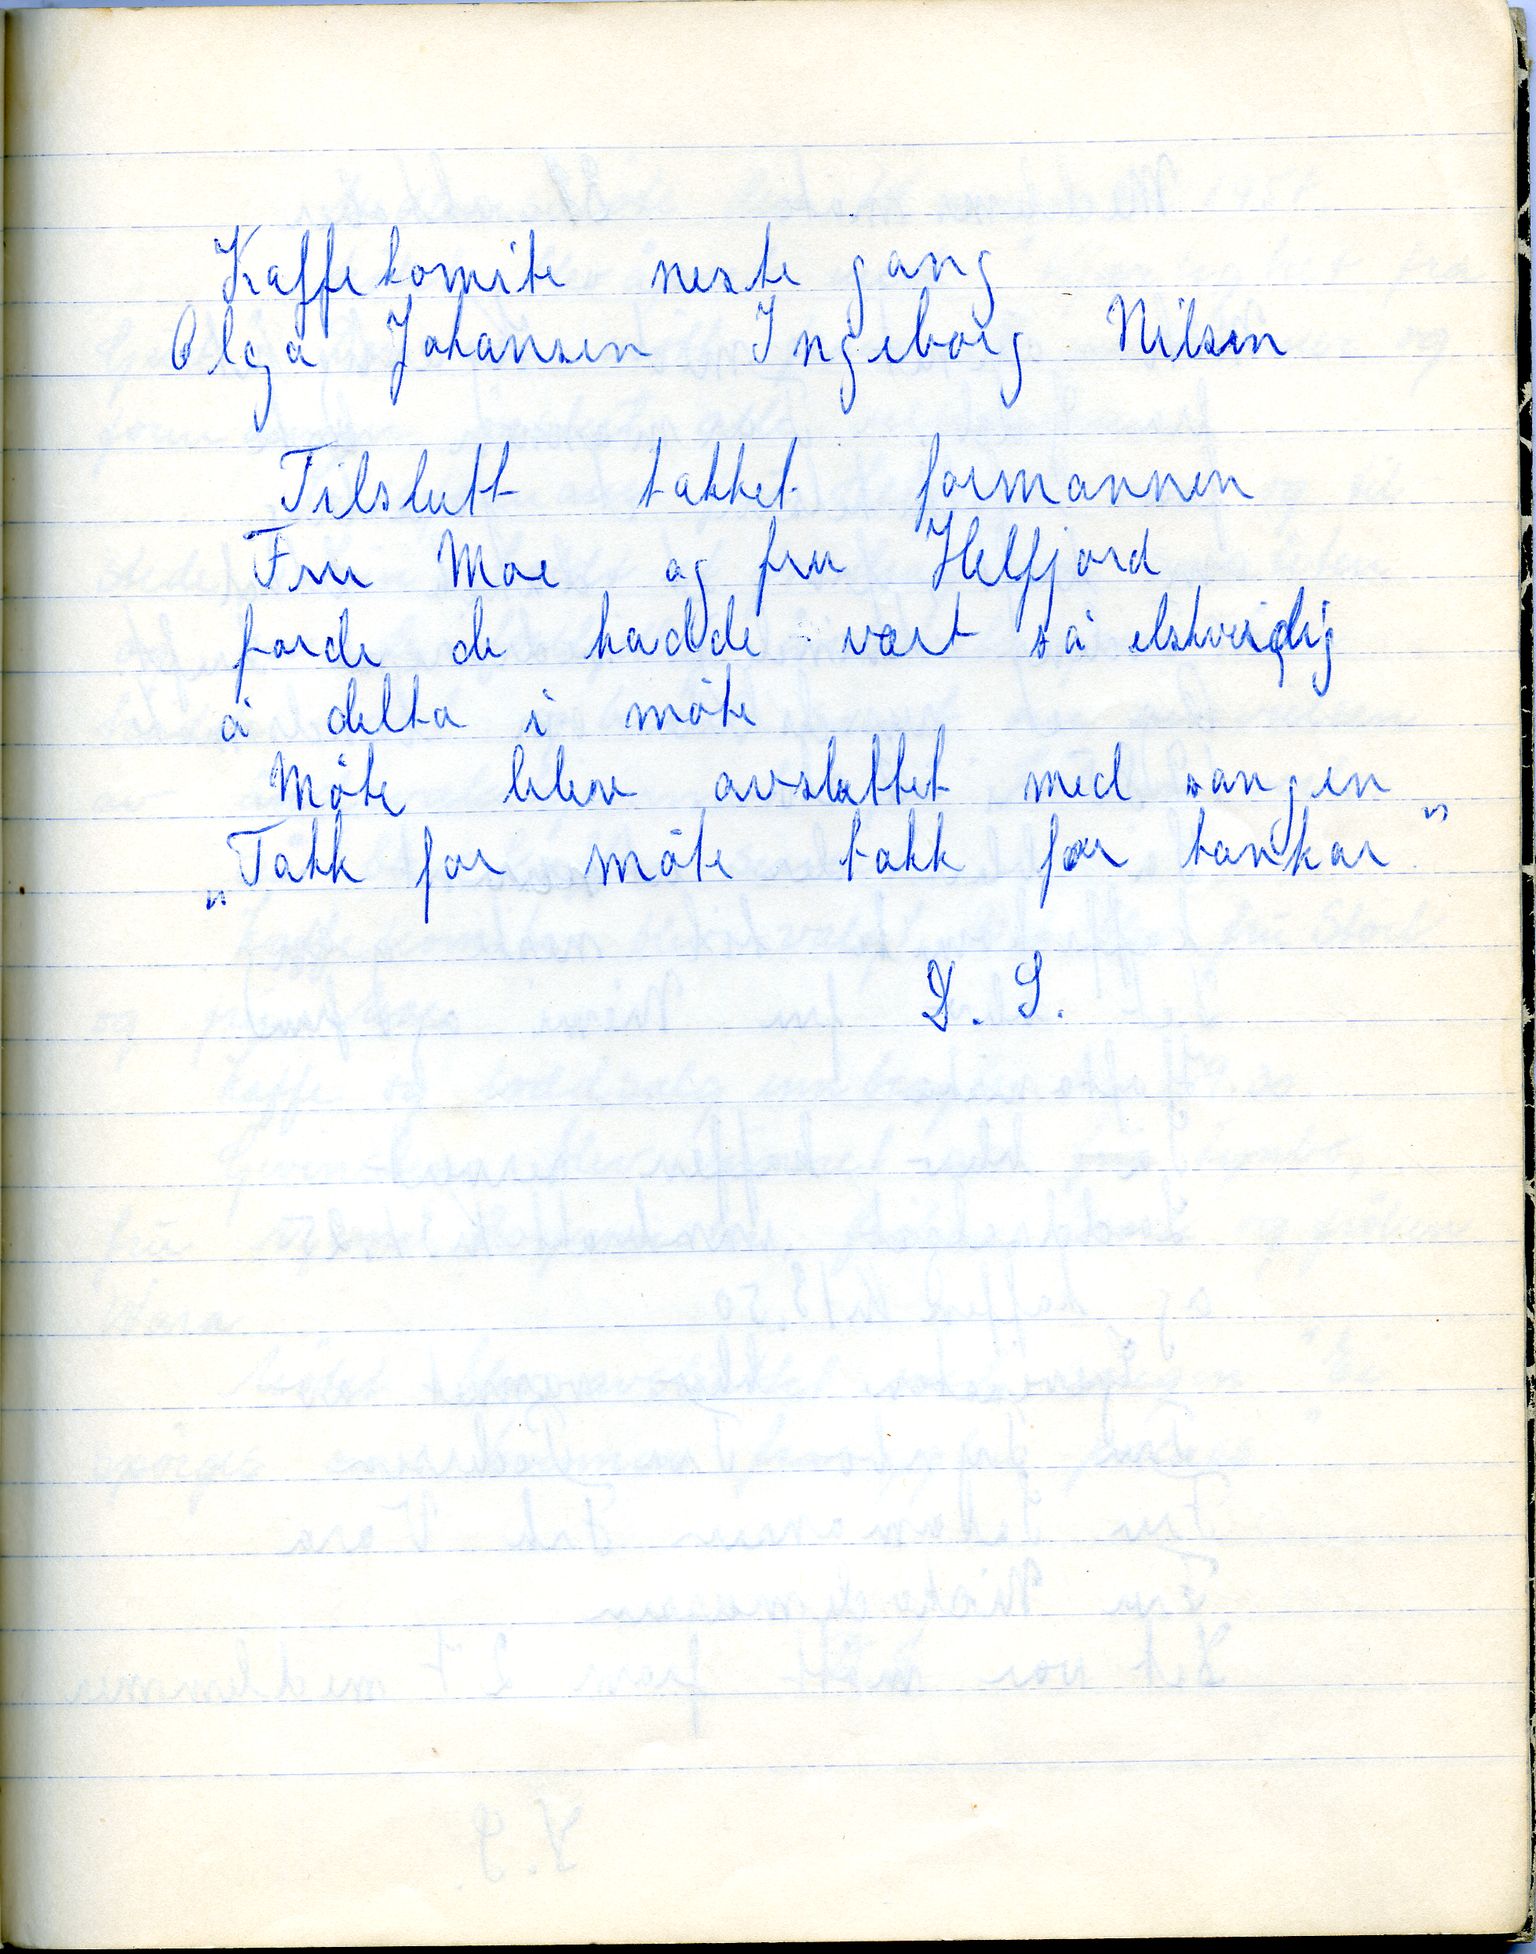 Kaffekomite neste gang
Olga Johansen Ingeborg Nilsen
Tilslutt takket formannen
Fru Moe og fru Helfjord
forde de hadde vært så elskverdig
å delta i møte
Møte blev avsluttet med sangen
"Takk for møte takk for tankar"
D. S.